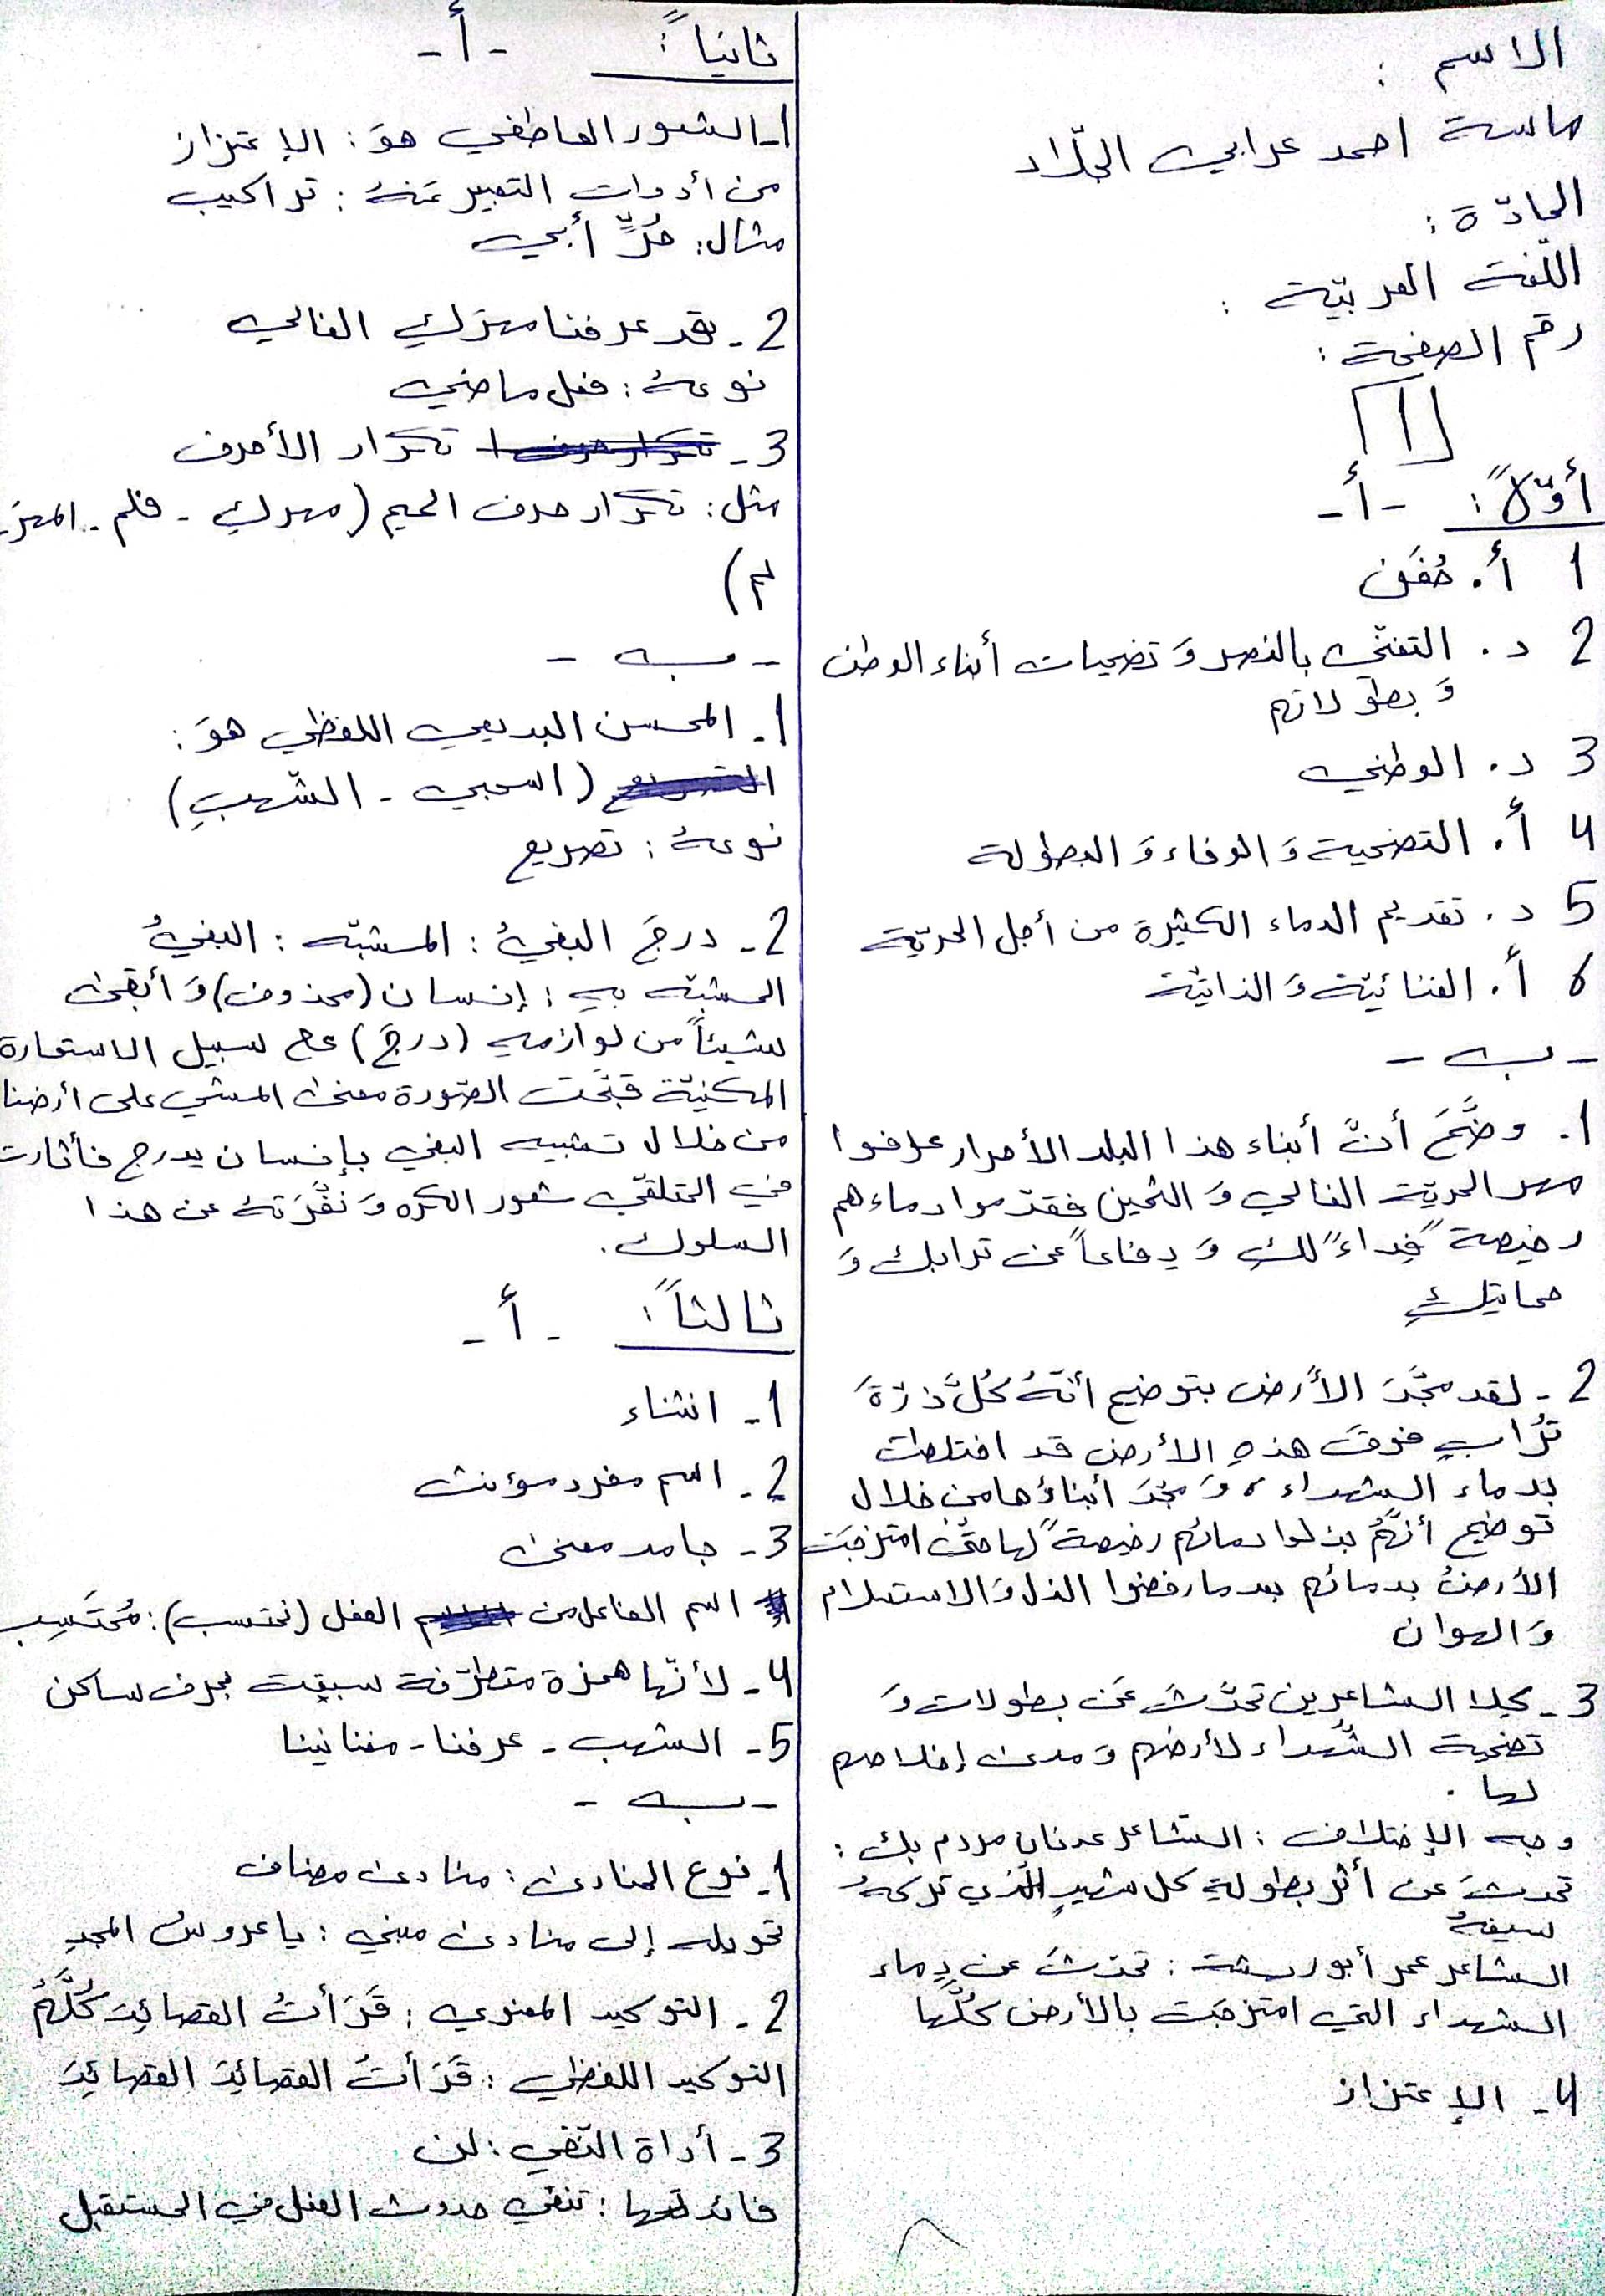 الاسم :
ماسة احمد عرابي الجلّاد
المادّة :
اللّغة العربيّة :
رقم الصفحة :
[1]
أوّلاً : - أ -
1 أ. خُفَق
2 د. التغنّي بالنصر وَ تضحيات أبناء الوطن
وَ بطولاتهم
3 د. الوطني
4 أ. التضحية وَ الوفاء وَ البطولة
5 د. تقديم الدماء الكثيرة من أجل الحريّة
6 أ. الغنائيّة وَ الذاتيّة
- ب -
1. وضَّحَ أنَّ أبناء هذا البلد الأحرار عرفوا
مهر الحريّة الغالي وَ الثمين فقدّموا دماءهم
رخيصة فِداءً لكِ وَ دِفاعاً عن ترابك وَ
حمايتكِ
2 - لقد مجَّدَ الأرض بتوضيح أنّهُ كُلَّ ذرّةَ
تُرابٍ فوقَ هذهِ الأرض قد اختلطت
بدماء الشهداء ، وَ مجّدَ أبناؤها من خلال
توضيح أنَّهُم بذلوا دمائهم رخيصةً لها حتّى امتزجَت
الأرضُ بدمائهم بعدما رفضوا الذل وَ الاستسلام
وَ الهوان
3 - كلا الشاعرين تحدّثَ عَن بطولات وَ
تضحية الشُّهداء لأرضهم وَ مدى إخلاصهم
لها .
وجه الإختلاف : الشاعر عدنان مردم بك :
تحدثَ عن أثر بطولةِ كل شهيدٍ الّذي تركهُ
سيفهُ
الشاعر عمر أبو ريشة : تحدّثَ عن دِماء
الشهداء التي امتزجَت بالأرض كُلِّها
4 - الإعتزاز
ثانياً : - أ -
1 - الشعور العاطفي هوَ : الإعتزاز
من أدوات التعبير عَنهُ : تراكيب
مثال : حُرٍّ أبي
2 - قد عرفنا مهرَكِ الغالي
نوعهُ : فعل ماضي
3 - تكرار الأحرف
مثل : تكرار حرف الميم (مهركِ - فلم - المهرَ -
لم)
- ب -
1 - المحسن البديعي اللفظي هوَ :
(اسحبي - الشّهبِ)
نوعهُ : تصريع
2 - درجَ البغيُ : المشبّه : البغيُ
المشبّه بهِ : إنسان (محذوف) وَ أبقى
شيئاً من لوازمهِ (درجَ) على سبيل الاستعارة
المكنيّة قبّحت الصّورة معنى المشي على أرضنا
من خلال تشبيه البغي بإنسان يدرج فأثارت
في المتلقّي شعور الكره وَ نفَّرَتهُ عن هذا
السلوك .
ثالثاً : - أ -
1 - انثناء
2 - اسم مفرد مؤنث
3 - جامد معنى
اسم الفاعل من الفعل (نحتسب) : مُحتَسِب
4 - لأنّها همزة متطرّفة سبقت بحرف ساكن
5 - الشهب - عرفنا - مغانينا
- ب -
1 - نوع المنادى : منادى مضاف
تحويله إلى منادى مبني : يا عروسُ المجدِ
2 - التوكيد المعنوي : قَرَأتُ القصائِدَ كُلَّهُم
التوكيد اللفظي : قَرَأتُ القصائِدَ القصائِدَ
3 - أداة النّفي : لن
فائدتها : تنفي حدوث الفعل في المستقبل